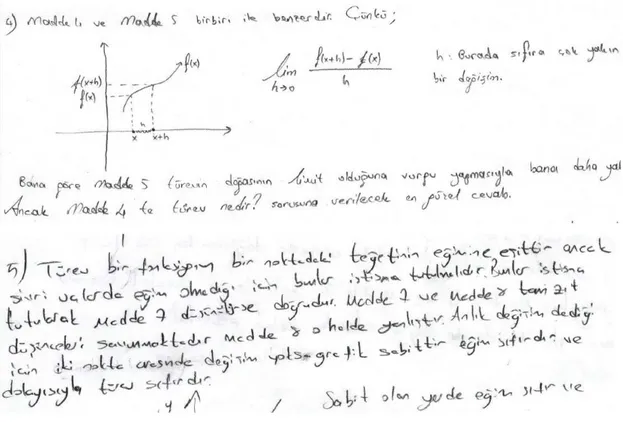 4) Madde 4 ve Madde 5 birbiri ile benzerdir. Çünkü;
f(x)
f(x+h)
f(x)
h
x x+h
lim h→0 f(x+h) - f(x) / h
h : Burada sıfıra çok yakın
bir değişim.
Bana göre Madde 5 türevin doğasının limit olduğuna vurgu yapmasıyla bana daha
Ancak Madde 4 te türev nedir? sorusuna verilecek en güzel cevab.
5) Türev bir fonksiyonun bir noktadaki teğetinin eğimine eşittir ancak
sivri uçlarda eğim olmadığı için bunlar istisna tutulmalıdır. Bunlar istisna
tutularak Madde 7 düşünülürse doğrudur. Madde 7 ve Madde 8 tam zıt
düşünceleri savunmaktadır madde 8 o halde yanlıştır. Anlık değişim dediği
için iki nokta arasında değişim yoksa grafik sabittir eğim sıfırdır ve
dolayısıyla türev sıfırdır.
y
Sabit olan yerde eğim sıfır ve